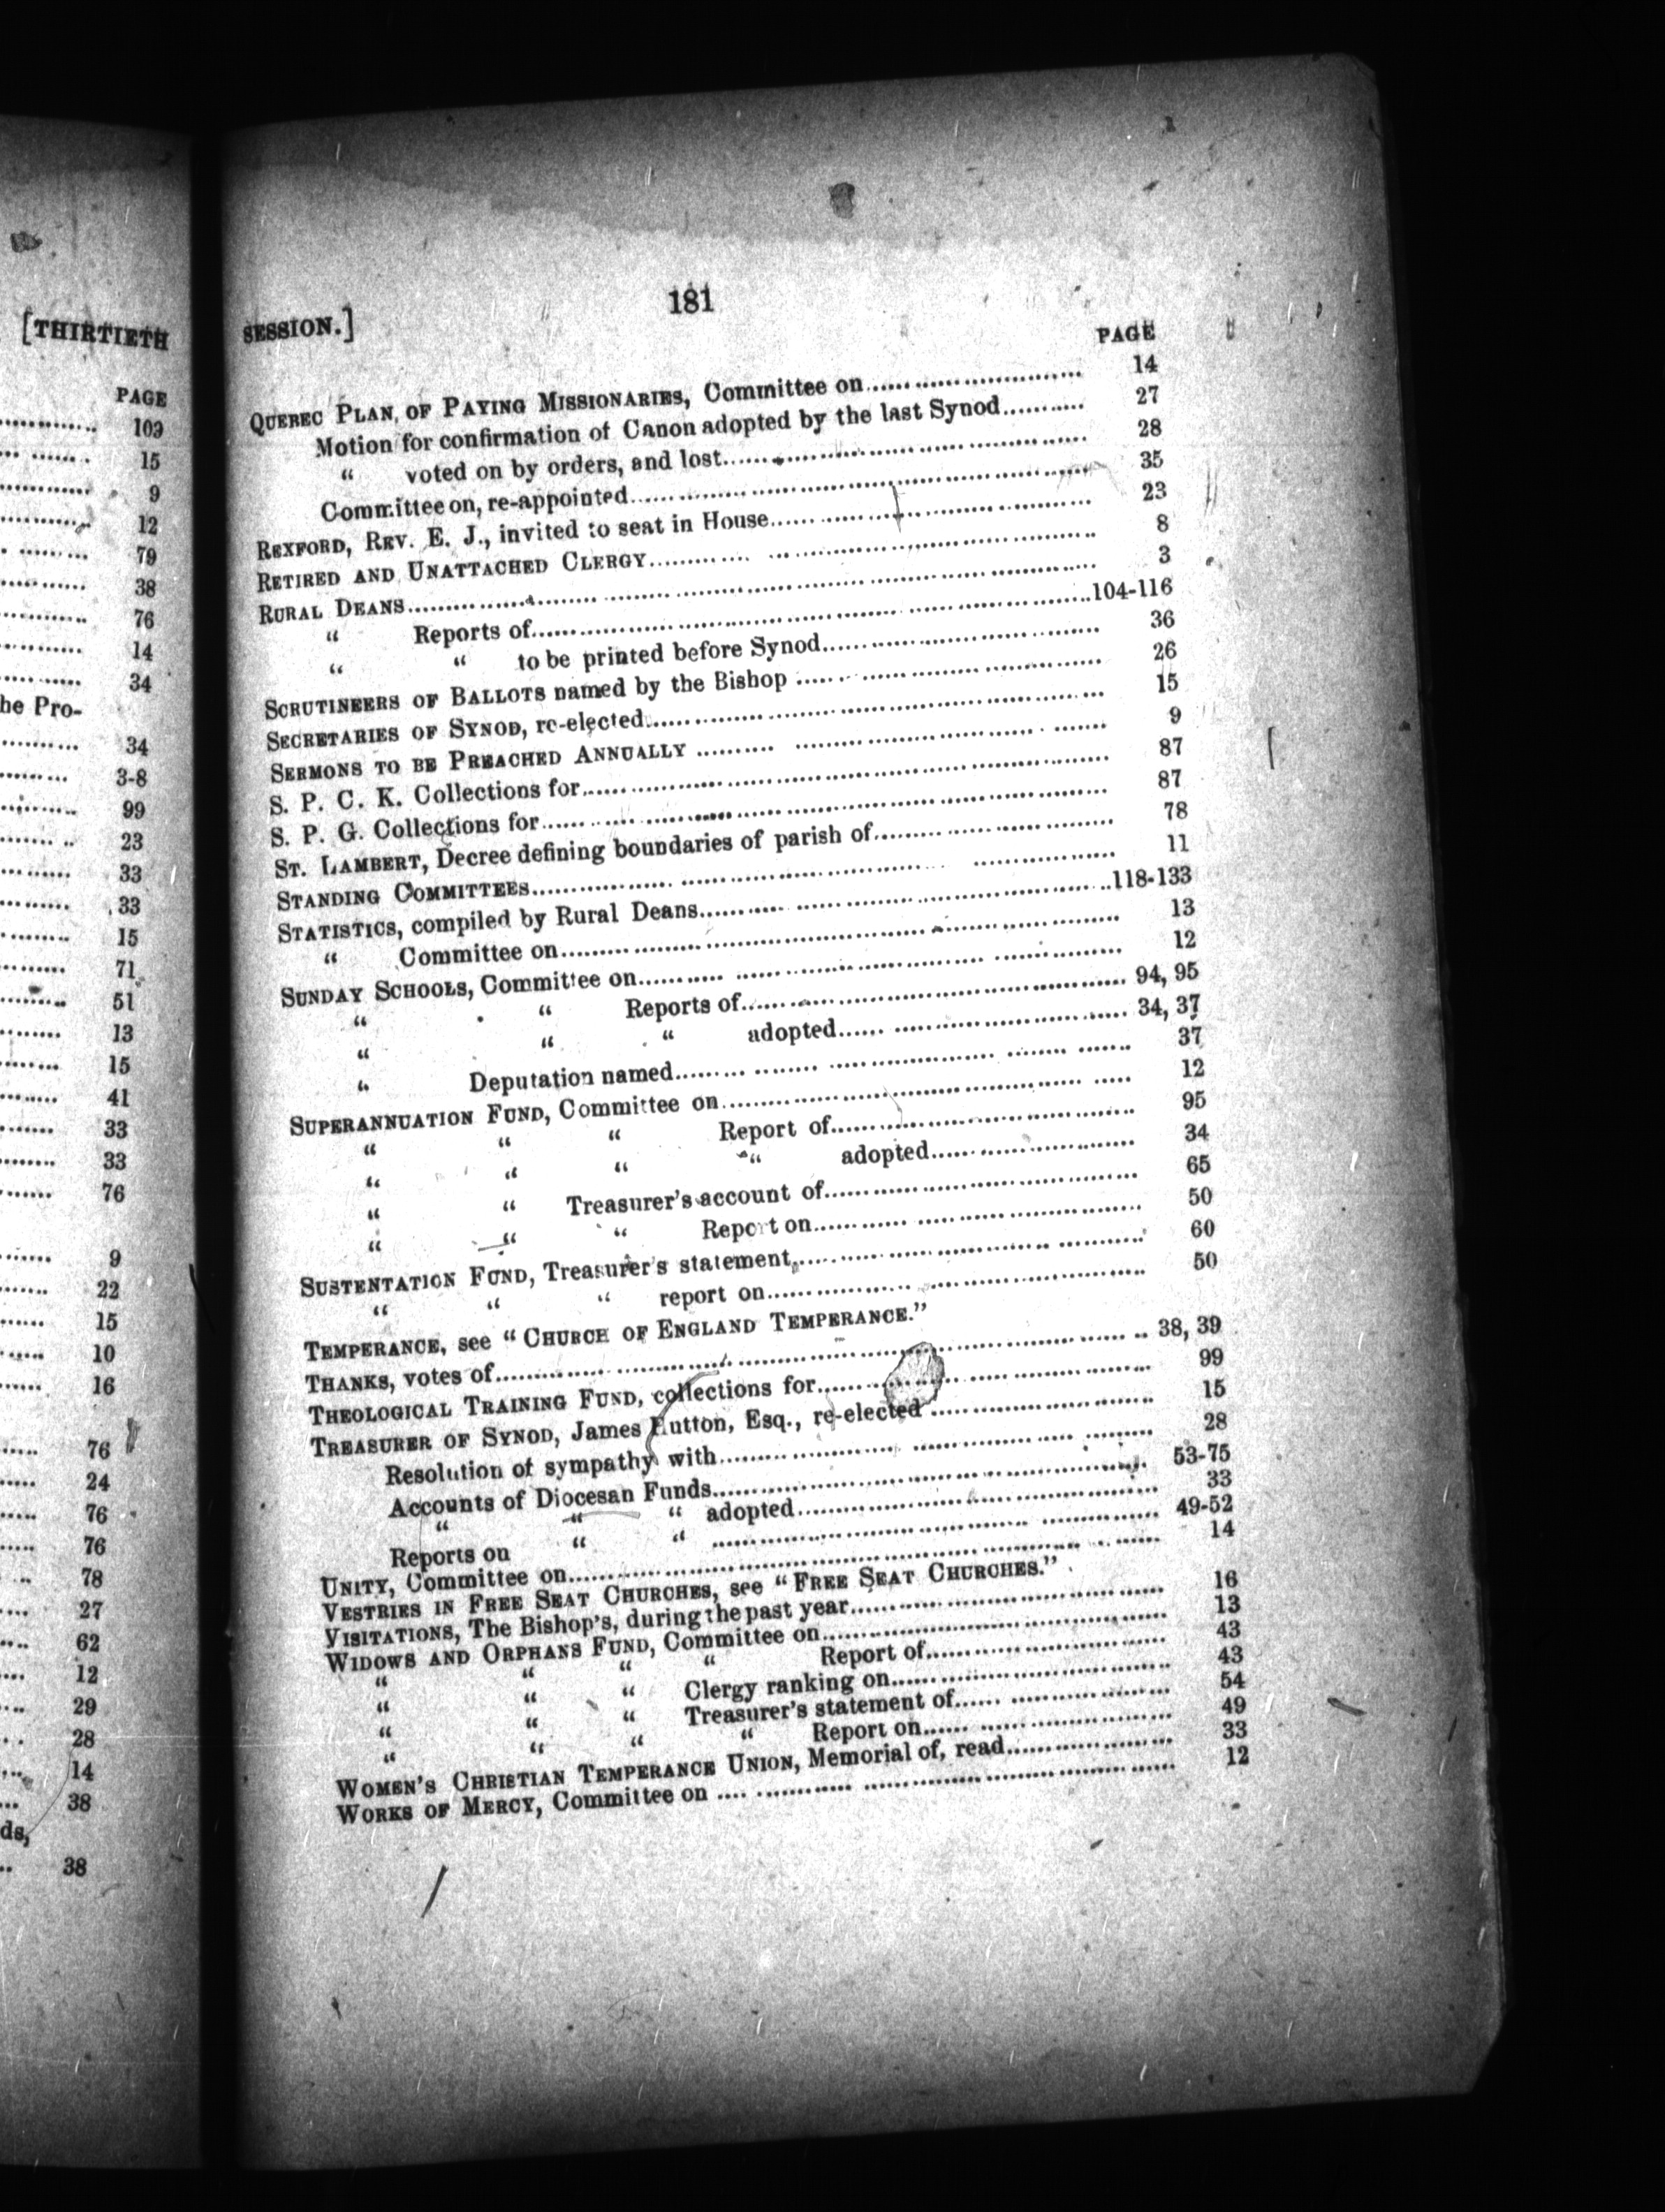 [THIRTIETH
PAGE
103
15
9
12
79
38
76
14
34
he Pro-
34
3-8
99
23
33
33
15
71
51
13
15
41
33
33
76
9
22
15
10
16
76
24
76
76
78
27
62
12
29
28
14
38
ds,
38
181
SESSION.]
PAGE
QUEBEC PLAN OF PAYING MISSIONARIES, Committee on 14
Motion for confirmation of Canon adopted by the last Synod 27
“ voted on by orders, and lost 28
Committee on, re-appointed 35
REXFORD, REV. E. J., invited to seat in House 23
RETIRED AND UNATTACHED CLERGY 8
RURAL DEANS 3
“ Reports of 104-116
“ “ to be printed before Synod 36
SCRUTINEERS OF BALLOTS named by the Bishop 26
SECRETARIES OF SYNOD, re-elected 15
SERMONS TO BE PREACHED ANNUALLY 9
S. P. C. K. Collections for 87
S. P. G. Collections for 87
ST. LAMBERT, Decree defining boundaries of parish of 78
STANDING COMMITTEES 11
STATISTICS, compiled by Rural Deans 118-133
“ Committee on 13
SUNDAY SCHOOLS, Committee on 12
“ “ Reports of 94, 95
“ “ “ adopted 34, 37
“ Deputation named 37
SUPERANNUATION FUND, Committee on 12
“ “ “ Report of 95
“ “ “ “ adopted 34
“ “ Treasurer's account of 65
“ “ “ Report on 50
SUSTENTATION FUND, Treasurer's statement 60
“ “ “ report on 50
TEMPERANCE, see “CHURCH OF ENGLAND TEMPERANCE.”
THANKS, votes of 38, 39
THEOLOGICAL TRAINING FUND, collections for 99
TREASURER OF SYNOD, James Hutton, Esq., re-elected 15
Resolution of sympathy with 28
Accounts of Diocesan Funds 53-75
“ “ “ adopted 33
Reports on “ “ 49-52
UNITY, Committee on 14
VESTRIES IN FREE SEAT CHURCHES, see “FREE SEAT CHURCHES.”
VISITATIONS, The Bishop's, during the past year 16
WIDOWS AND ORPHANS FUND, Committee on 13
“ “ “ “ Report of 43
“ “ “ Clergy ranking on 43
“ “ “ Treasurer's statement of 54
“ “ “ “ Report on 49
WOMEN'S CHRISTIAN TEMPERANCE UNION, Memorial of, read 33
WORKS OF MERCY, Committee on 12